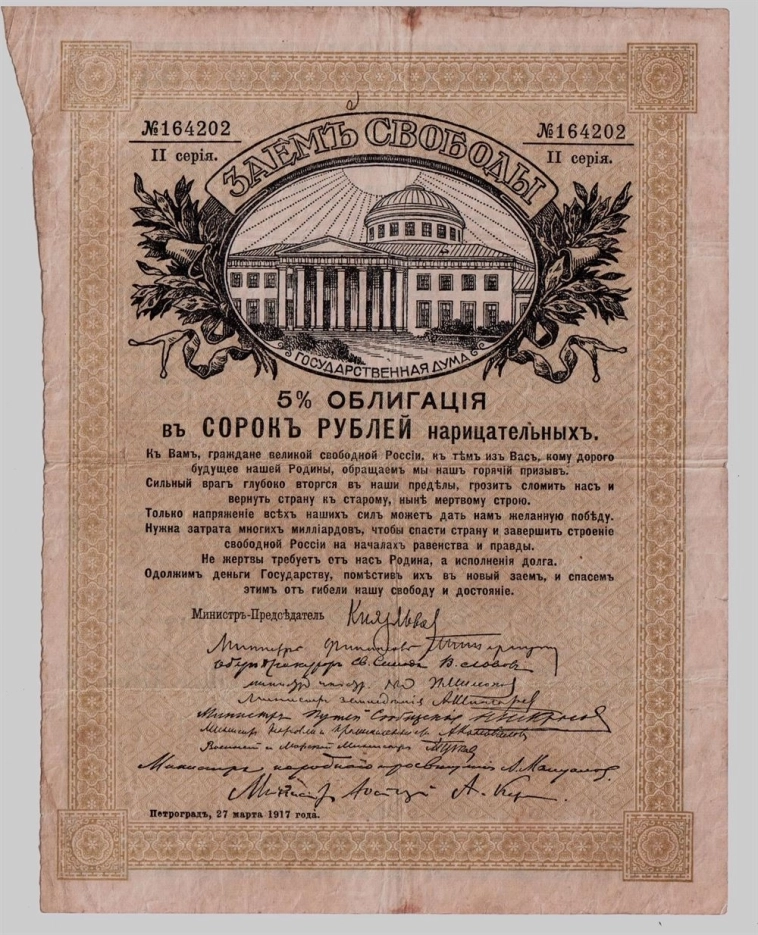 №164202
№164202
II серія.
II серія.
ЗАЕМЪ СВОБОДЫ
ГОСУДАРСТВЕННАЯ ДУМА
5% ОБЛИГАЦІЯ
въ СОРОКЪ РУБЛЕЙ нарицательныхъ.
Къ Вамъ, граждане великой свободной Россіи, къ тѣмъ изъ Васъ, кому дорого
будущее нашей Родины, обращаемъ мы нашъ горячій призывъ.
Сильный врагъ глубоко вторгся въ наши предѣлы, грозитъ сломить насъ и
вернуть страну къ старому, нынѣ мертвому строю.
Только напряженіе всѣхъ нашихъ силъ можетъ дать намъ желанную побѣду.
Нужна затрата многихъ милліардовъ, чтобы спасти страну и завершить строеніе
свободной Россіи на началахъ равенства и правды.
Не жертвы требуетъ отъ насъ Родина, а исполненія долга.
Одолжимъ деньги Государству, помѣстивъ ихъ въ новый заемъ, и спасемъ
этимъ отъ гибели нашу свободу и достояніе.
Министръ-Предсѣдатель Князь Львов
Министръ Финансовъ
Оберъ Прокуроръ Св. Синода В. Львовъ
Министръ земледѣлія А. Шингарев
Министръ Путей Сообщенія Н. Некрасов
Министръ торговли и промышленности А. Коновалов
Военный и Морской Министръ
Министръ народнаго просвѣщенія А. Мануилов.
Министр Юстиции А. Кер
Петроградъ, 27 марта 1917 года.